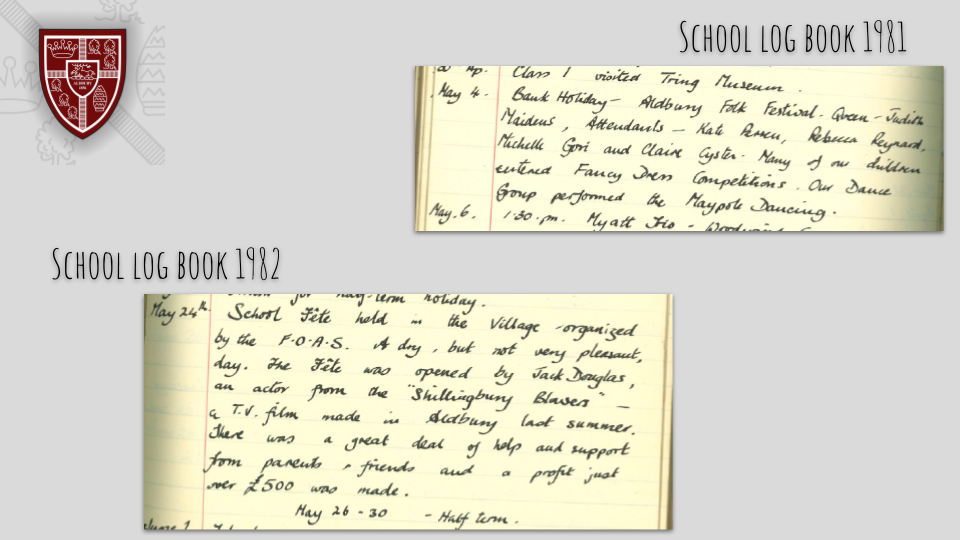 SCHOOL LOG BOOK 1981
Ap. Class 1 visited Tring Museum.
May 4. Bank Holiday - Aldbury Folk Festival. Queen - Judith
Maidens, Attendants - Kate Perren, Rebecca Reynard,
Michelle Gori and Claire Cyster. Many of our children
entered Fancy Dress Competitions. Our Dance
Group performed the Maypole Dancing.
May. 6. 1.30.pm. Myatt Trio - Woodwind
SCHOOL LOG BOOK 1982
for half-term holiday.
May 24th. School Fête held in the Village - organized
by the F.O.A.S. A dry, but not very pleasant,
day. The Fête was opened by Jack Douglas,
an actor from the "Shillingbury Blowers" -
a T.V. film made in Aldbury last summer.
There was a great deal of help and support
from parents & friends and a profit just
over £500 was made.
May 26 - 30 - Half term.
June 1